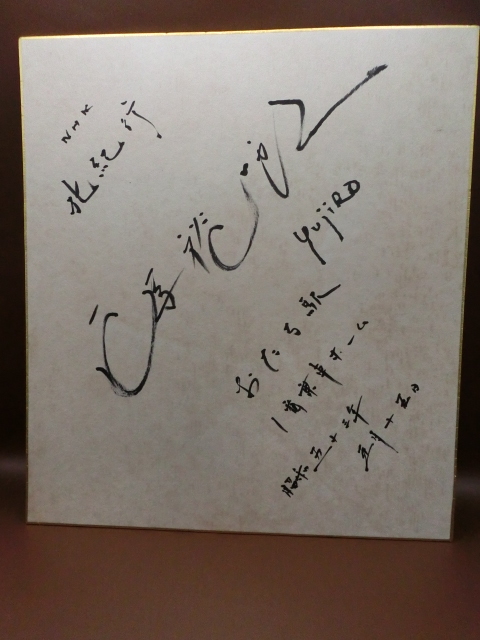 NHK
北紀行
石原裕次郎
YujiRO
おたる駅
1番乗車ホーム
昭和五十三年
五月十五日